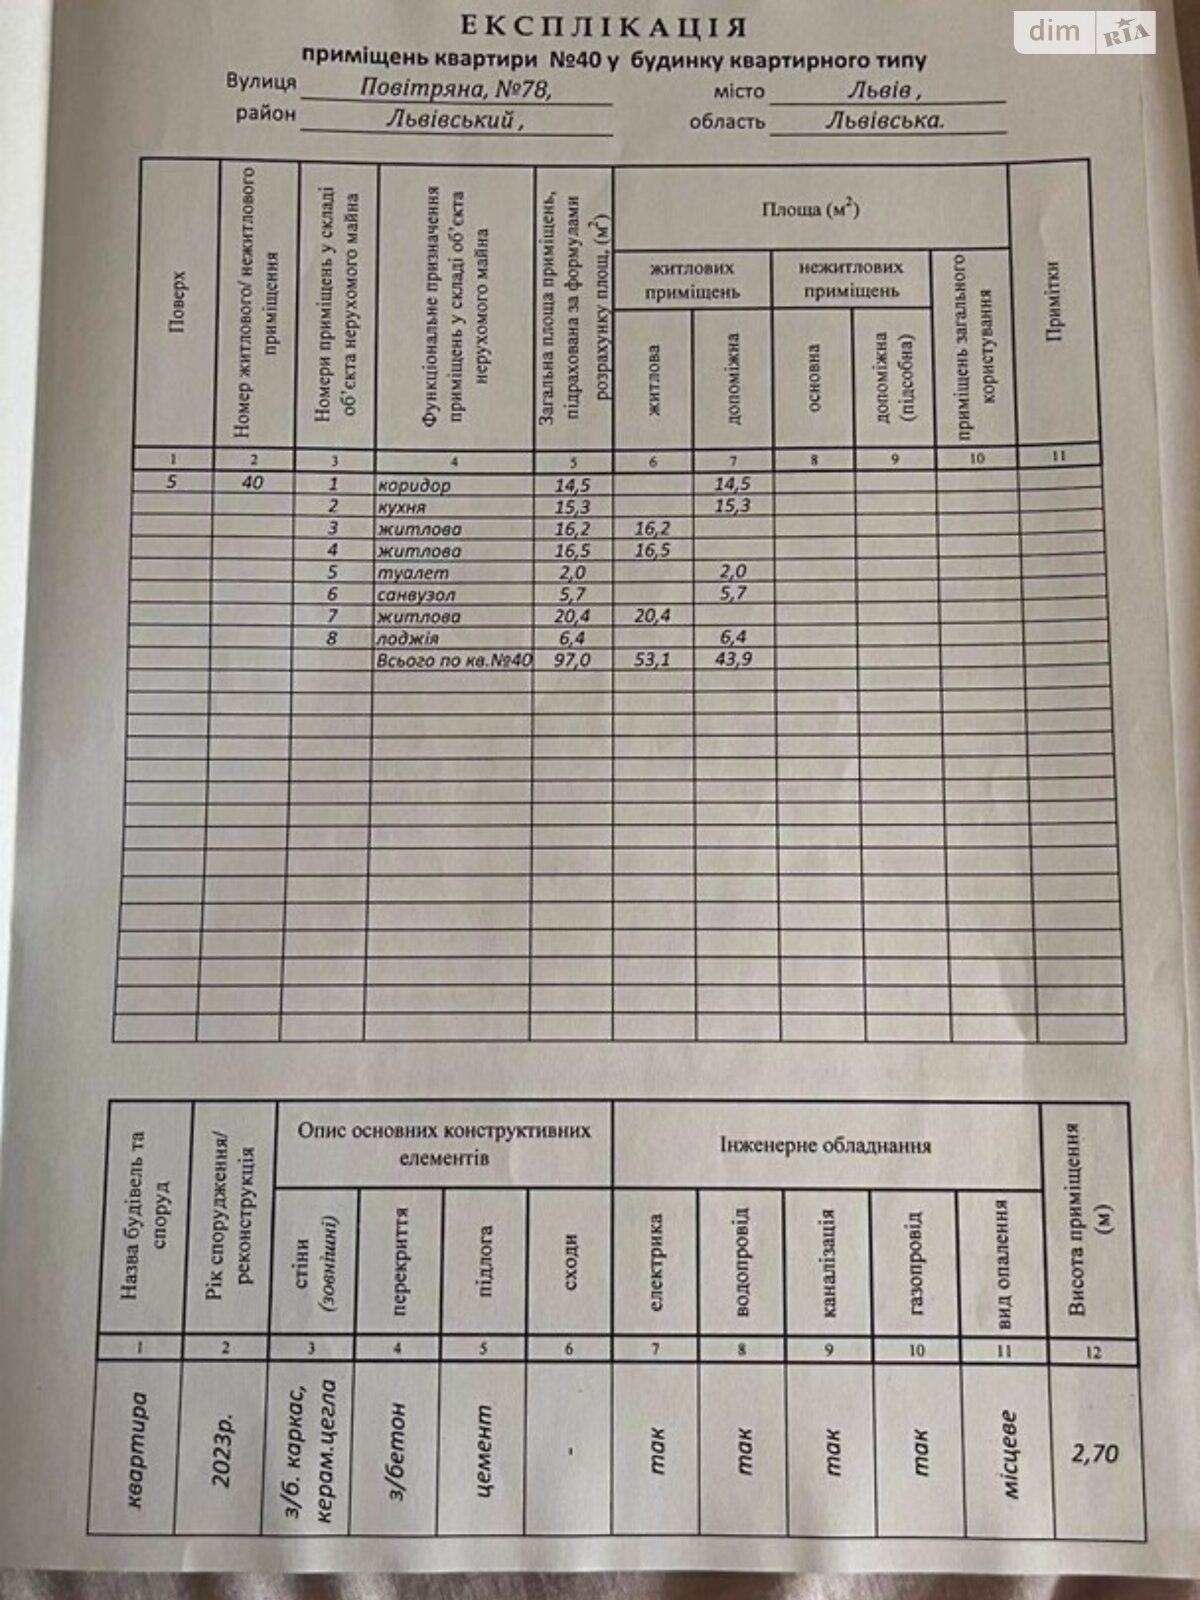 dim RIA
ЕКСПЛІКАЦІЯ
приміщень квартири №40 у будинку квартирного типу
Вулиця Повітряна, №78, місто Львів ,
район Львівський , область Львівська.
Поверх
Номер житлового/ нежитлового приміщення
Номери приміщень у складі об'єкта нерухомого майна
Функціональне призначення приміщень у складі об'єкта нерухомого майна
Загальна площа приміщень, підрахована за формулами розрахунку площ, (м²)
Площа (м²)
житлових приміщень
нежитлових приміщень
житлова
допоміжна
основна
допоміжна (підсобна)
приміщень загального користування
Примітки
1 2 3 4 5 6 7 8 9 10 11
5 40 1 коридор 14,5 14,5
2 кухня 15,3 15,3
3 житлова 16,2 16,2
4 житлова 16,5 16,5
5 туалет 2,0 2,0
6 санвузол 5,7 5,7
7 житлова 20,4 20,4
8 лоджія 6,4 6,4
Всього по кв.№40 97,0 53,1 43,9
Назва будівель та споруд
Рік спорудження/ реконструкція
Опис основних конструктивних елементів
Інженерне обладнання
стіни (зовнішні)
перекриття
підлога
сходи
електрика
водопровід
каналізація
газопровід
вид опалення
Висота приміщення (м)
1 2 3 4 5 6 7 8 9 10 11 12
квартира
2023р.
з/б. каркас, керам.цегла
з/бетон
цемент
-
так
так
так
так
місцеве
2,70